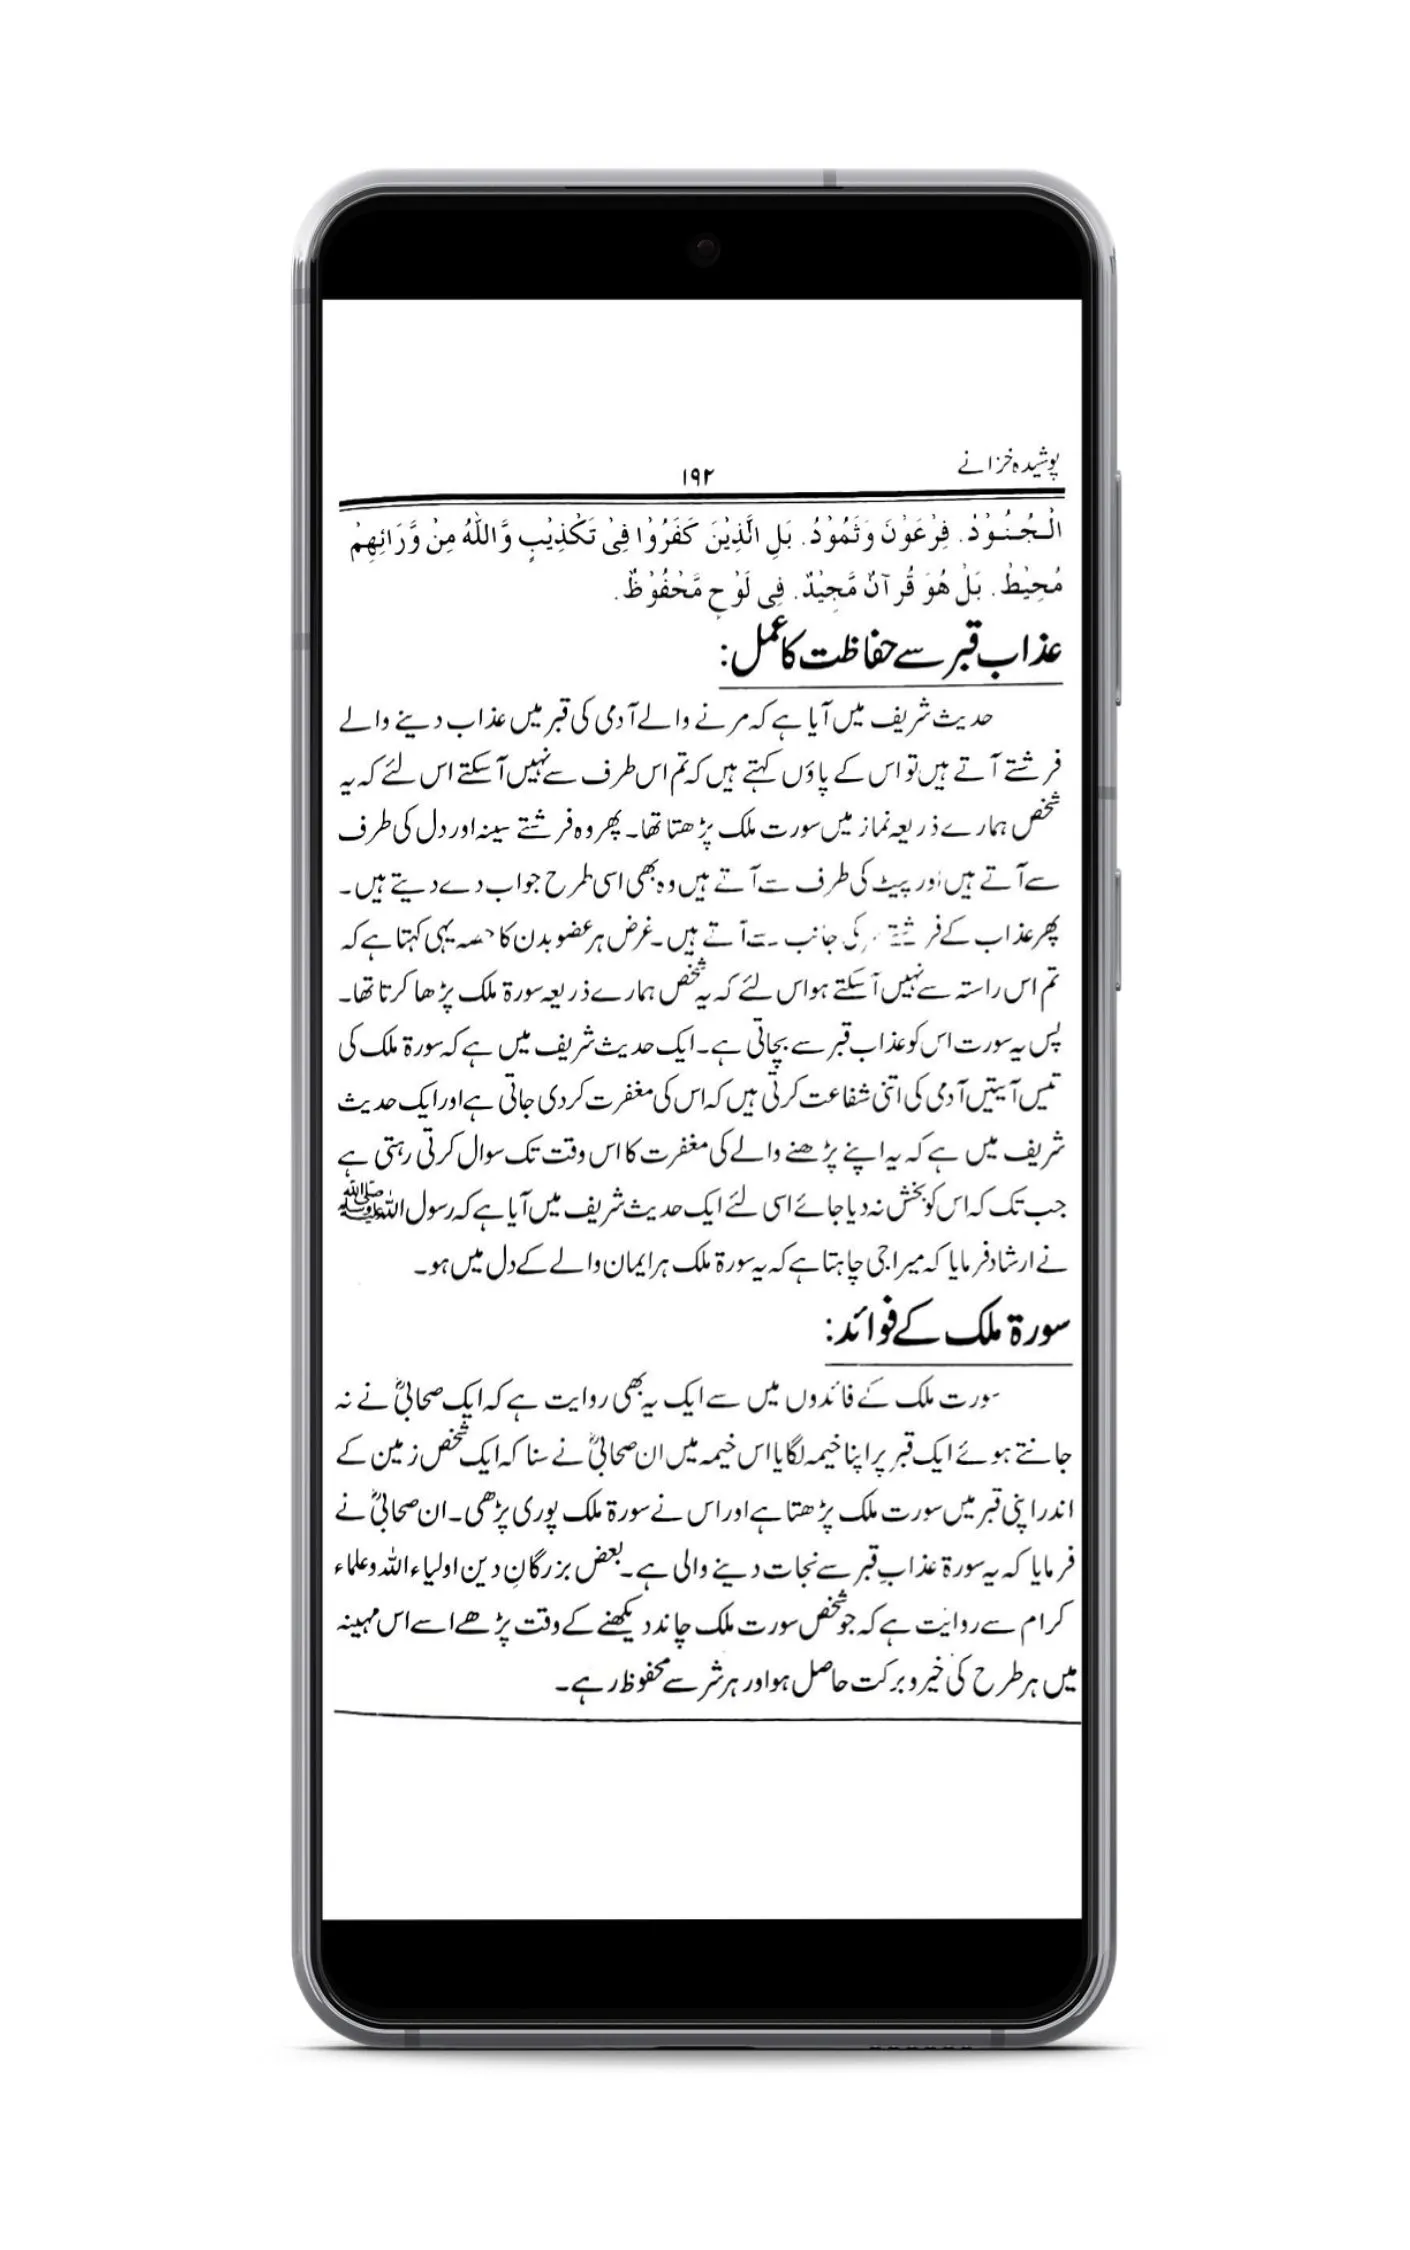 پوشیدہ خزانے
۱۹۲
الْجُنُوْدْ. فِرْعَوْنَ وَثَمُوْدُ. بَلِ الَّذِيْنَ كَفَرُوْا فِىْ تَكْذِيْبٍ وَّاللّٰهُ مِنْ وَّرَائِهِمْ
مُحِيْطْ. بَلْ هُوَ قُرآنٌ مَّجِيْدٌ. فِى لَوْحٍ مَّحْفُوْظٌ.
عذاب قبر سے حفاظت کا عمل:
حدیث شریف میں آیا ہے کہ مرنے والے آدمی کی قبر میں عذاب دینے والے
فرشتے آتے ہیں تو اس کے پاؤں کہتے ہیں کہ تم اس طرف سے نہیں آسکتے اس لئے کہ یہ
شخص ہمارے ذریعہ نماز میں سورت ملک پڑھتا تھا۔ پھر وہ فرشتے سینہ اور دل کی طرف
سے آتے ہیں اور پیٹ کی طرف سے آتے ہیں وہ بھی اسی طرح جواب دے دیتے ہیں۔
پھر عذاب کے فرشتے کی جانب سے آتے ہیں۔ غرض ہر عضو بدن کا حصہ یہی کہتا ہے کہ
تم اس راستہ سے نہیں آسکتے ہو اس لئے کہ یہ شخص ہمارے ذریعہ سورۃ ملک پڑھا کرتا تھا۔
پس یہ سورت اس کو عذاب قبر سے بچاتی ہے۔ ایک حدیث شریف میں ہے کہ سورۃ ملک کی
تیس آیتیں آدمی کی اتنی شفاعت کرتی ہیں کہ اس کی مغفرت کردی جاتی ہے اور ایک حدیث
شریف میں ہے کہ یہ اپنے پڑھنے والے کی مغفرت کا اس وقت تک سوال کرتی رہتی ہے
جب تک کہ اس کو بخش نہ دیا جائے اسی لئے ایک حدیث شریف میں آیا ہے کہ رسول اللہ ﷺ
نے ارشاد فرمایا کہ میرا جی چاہتا ہے کہ یہ سورۃ ملک ہر ایمان والے کے دل میں ہو۔
سورۃ ملک کے فوائد:
سورت ملک کے فائدوں میں سے ایک یہ بھی روایت ہے کہ ایک صحابیؓ نے نہ
جانتے ہوئے ایک قبر پر اپنا خیمہ لگایا اس خیمہ میں ان صحابیؓ نے سنا کہ ایک شخص زمین کے
اندر اپنی قبر میں سورت ملک پڑھتا ہے اور اس نے سورۃ ملک پوری پڑھی۔ ان صحابیؓ نے
فرمایا کہ یہ سورۃ عذابِ قبر سے نجات دینے والی ہے۔ بعض بزرگانِ دین اولیاء اللہ و علماء
کرام سے روایت ہے کہ جو شخص سورت ملک چاند دیکھنے کے وقت پڑھے اسے اس مہینہ
میں ہر طرح کی خیر و برکت حاصل ہو اور ہر شر سے محفوظ رہے۔